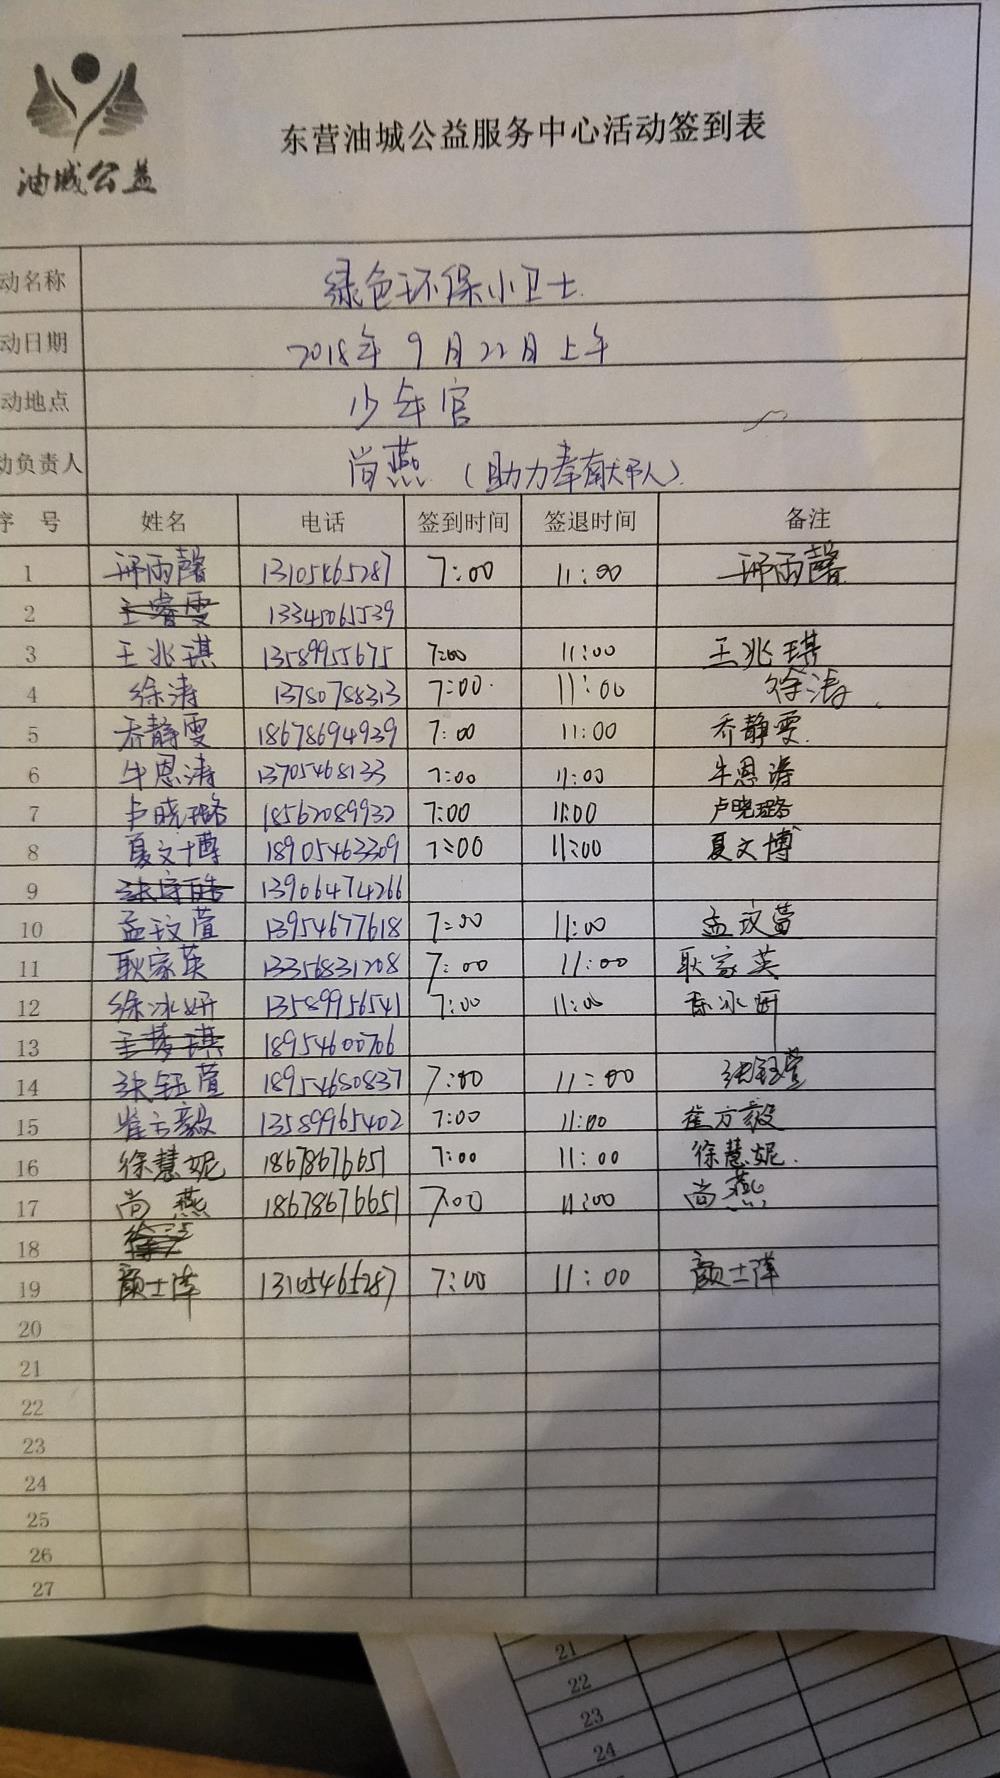 油城公益
东营油城公益服务中心活动签到表
动名称 绿色环保小卫士
动日期 2018年9月22日上午
动地点 少年宫
动负责人 尚燕(助力奉献环人)
序号 姓名 电话 签到时间 签退时间 备注
1 邢雨馨 13105465287 7:00 11:00 邢雨馨
2 王睿雯 13345065539
3 王兆琪 13589955675 7:00 11:00 王兆琪
4 徐涛 13780788313 7:00 11:00 徐涛
5 乔静雯 18678694939 7:00 11:00 乔静雯
6 牛恩涛 13705468133 7:00 11:00 牛恩涛
7 卢晓璐 18562089932 7:00 11:00 卢晓璐
8 夏文博 18905463309 7:00 11:00 夏文博
9 13906474266
10 孟玟萱 13954677618 7:00 11:00 孟玟萱
11 耿家英 13356831208 7:00 11:00 耿家英
12 徐冰妍 13589956541 7:00 11:00 徐冰妍
13 王梦琪 18954600706
14 张钰萱 18954680837 7:00 11:00 张钰萱
15 崔方毅 13589965402 7:00 11:00 崔方毅
16 徐慧妮 18678676651 7:00 11:00 徐慧妮
17 尚燕 18678676651 7:00 11:00 尚燕
18
19 颜士萍 13105465287 7:00 11:00 颜士萍
20
21
22
23
24
25
26
27
21
22
23
24